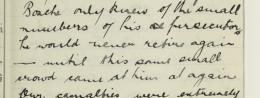 Boche only knew of the small
numbers of his persecutors
he would never retire again
— until this same small
crowd came at him at again
Our casualties were extremely